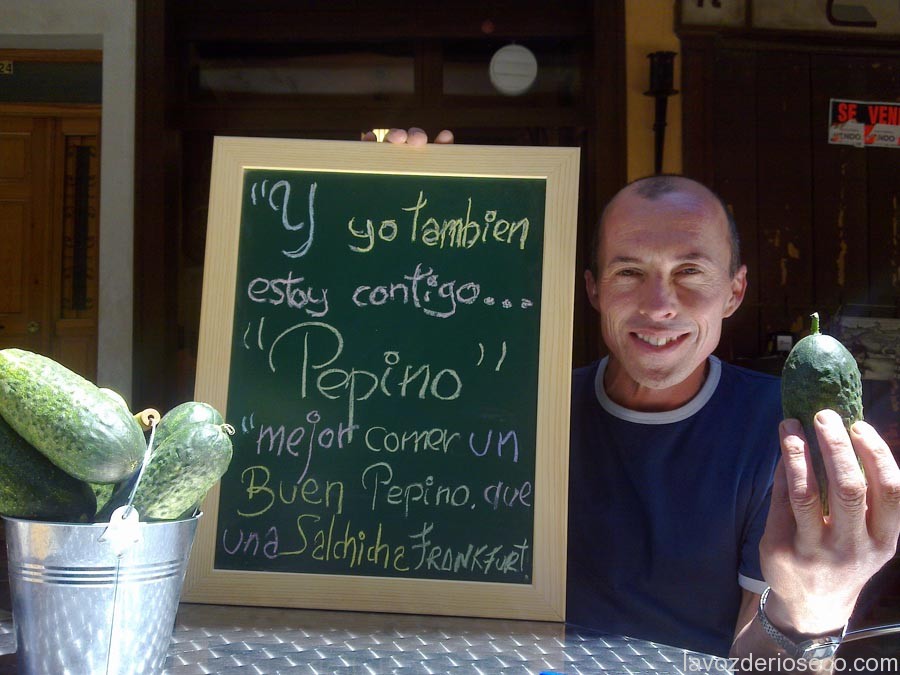 24
SE VEN
"Y yo tambien
estoy contigo...
"Pepino"
"mejor comer un
Buen Pepino. que
una Salchicha FRANKFURT
lavozderioseco.com